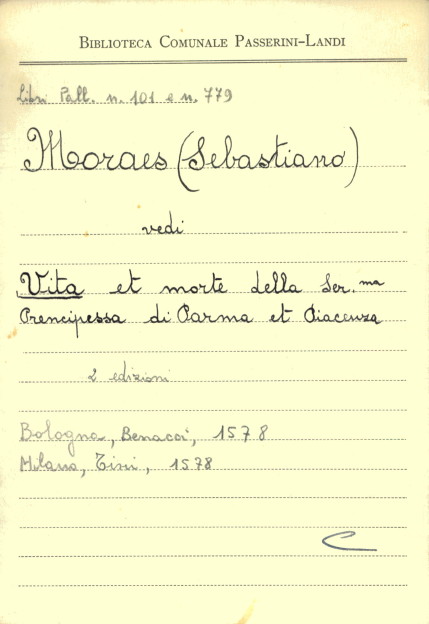 BIBLIOTECA COMUNALE PASSERINI-LANDI
Libri Pall. n. 101 e n. 779
Moraes (Sebastiano)
vedi
Vita et morte della Ser.ma
Prencipessa di Parma et Piacenza
2 edizioni
Bologna, Benacci, 1578
Milano, Tini, 1578
C